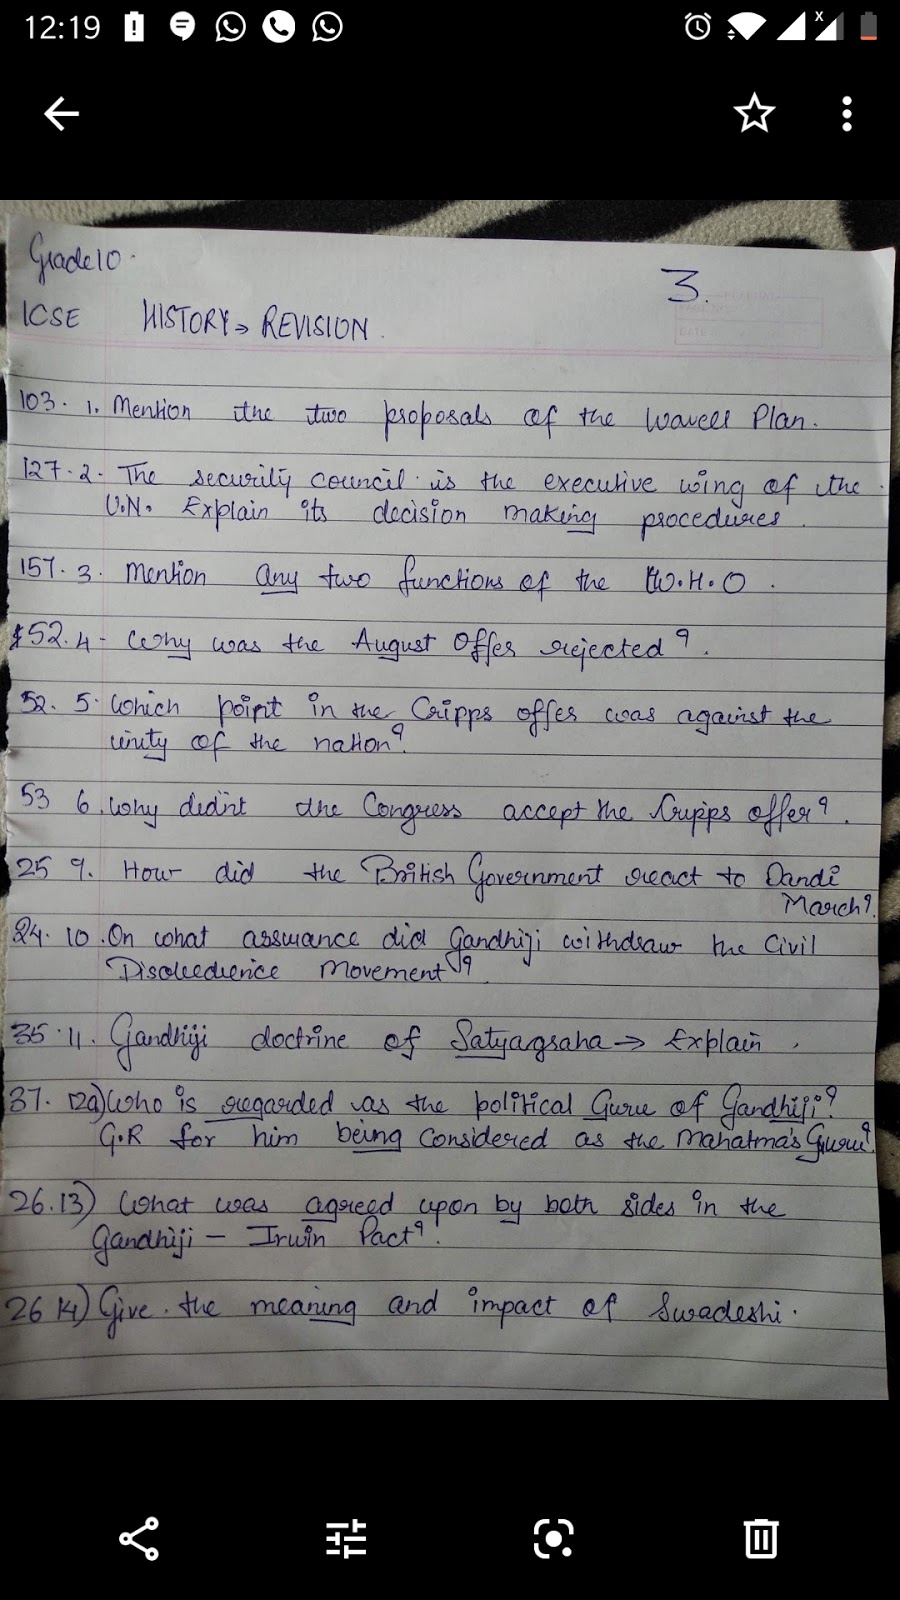 12:19
Grade 10.
3.
ICSE HISTORY → REVISION.
103. 1. Mention the two proposals of the Wavell Plan.
127. 2. The security council is the executive wing of the
U.N. Explain its decision making procedures.
157. 3. Mention any two functions of the W.H.O.
52. 4 - Why was the August Offer rejected?.
52. 5. Which point in the Cripps offer was against the
unity of the nation?
53 6. Why didn't the Congress accept the Cripps offer?.
25 9. How did the British Government react to Dandi
March?.
24. 10. On what assurance did Gandhiji withdraw the Civil
Disobedience Movement?
35. 11. Gandhiji doctrine of Satyagraha → Explain.
37. 12a) Who is regarded as the political Guru of Gandhiji?
G.R for him being considered as the Mahatma's Guru?
26. 13) What was agreed upon by both sides in the
Gandhiji - Irwin Pact?.
26 14) Give the meaning and impact of Swadeshi.